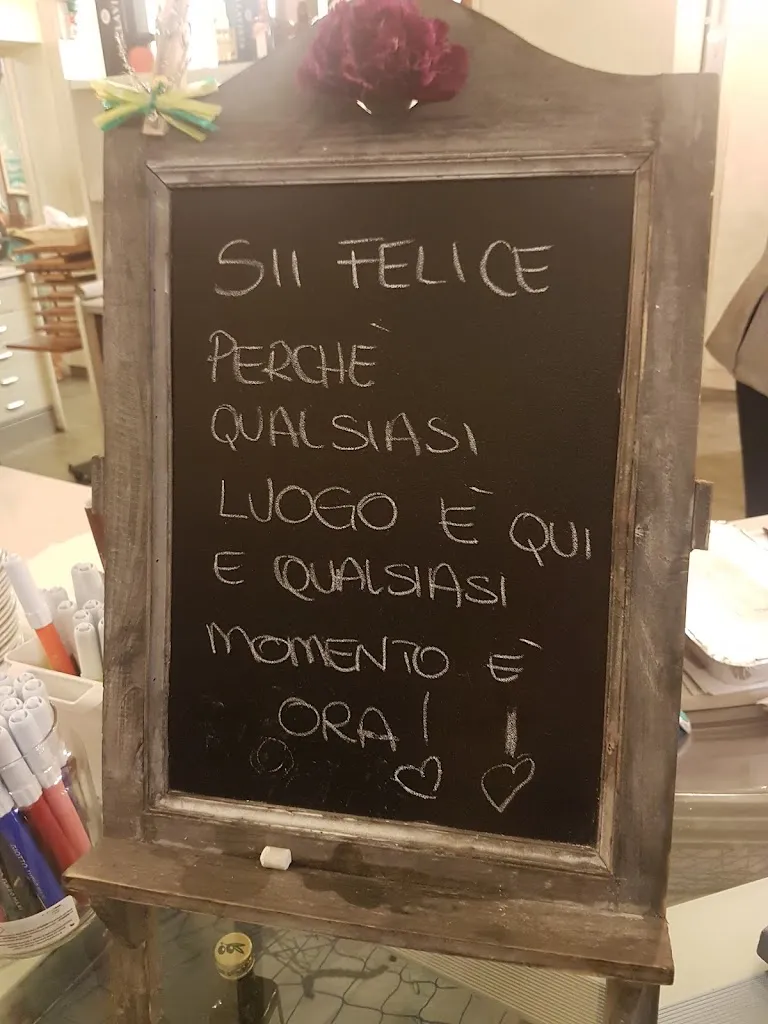 SII FELICE
PERCHÈ
QUALSIASI
LUOGO È QUI
E QUALSIASI
MOMENTO È
ORA!